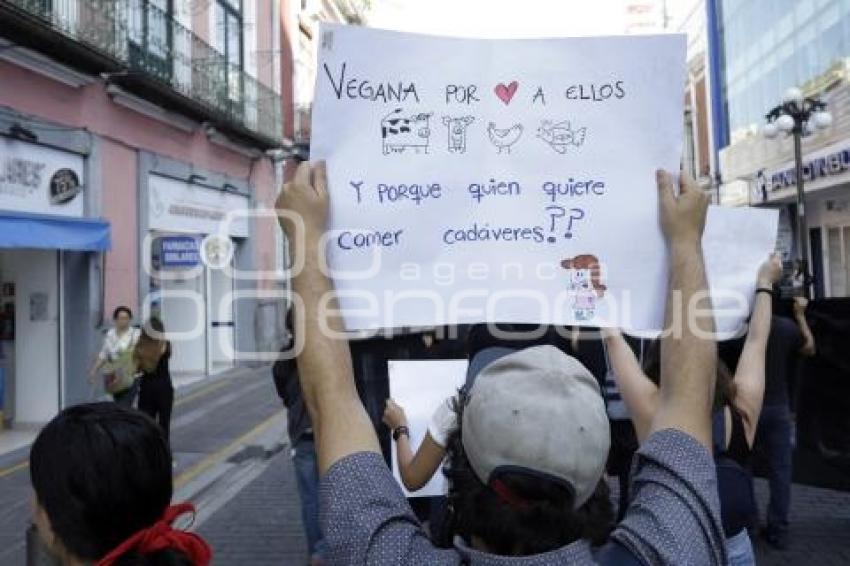 VEGANA POR ♥ A ELLOS
Y PORQUE quien quiere
comer cadáveres??
agencia
enfoque
FARMACIAS
SIMILARES